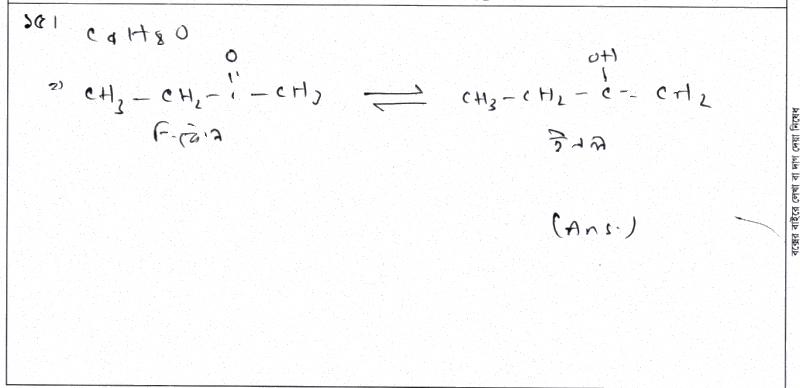 ১৫। C4H8O
২) CH3 – CH2 – C – CH3 ⇌ CH3 – CH2 – C = CH2
O OH
ইনল
(Ans.)
বক্সের বাইরে লেখা বা দাগ দেয়া নিষেধ